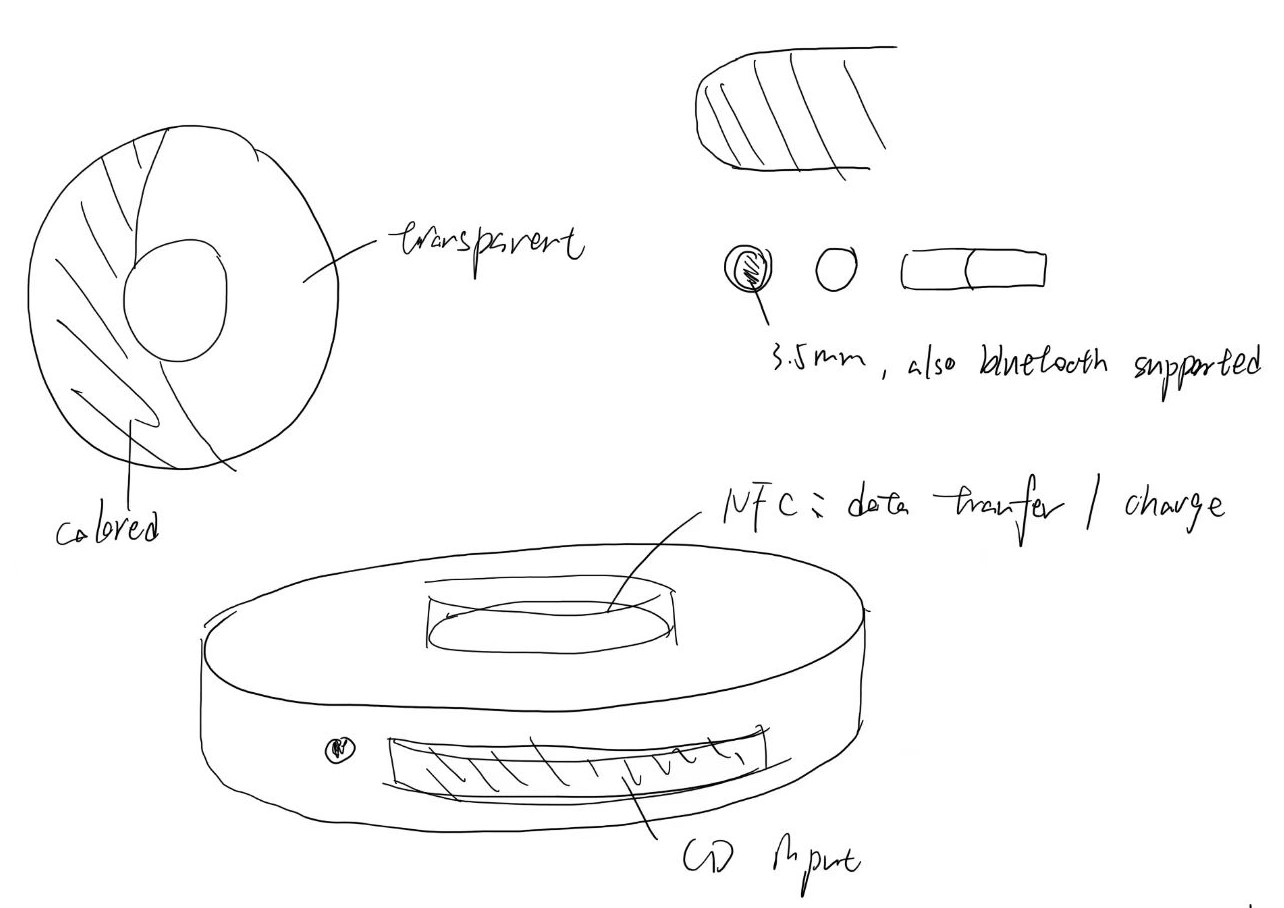 transparent
3.5mm, also bluetooth supported
colored
NFC: data tranfer / charge
CD input